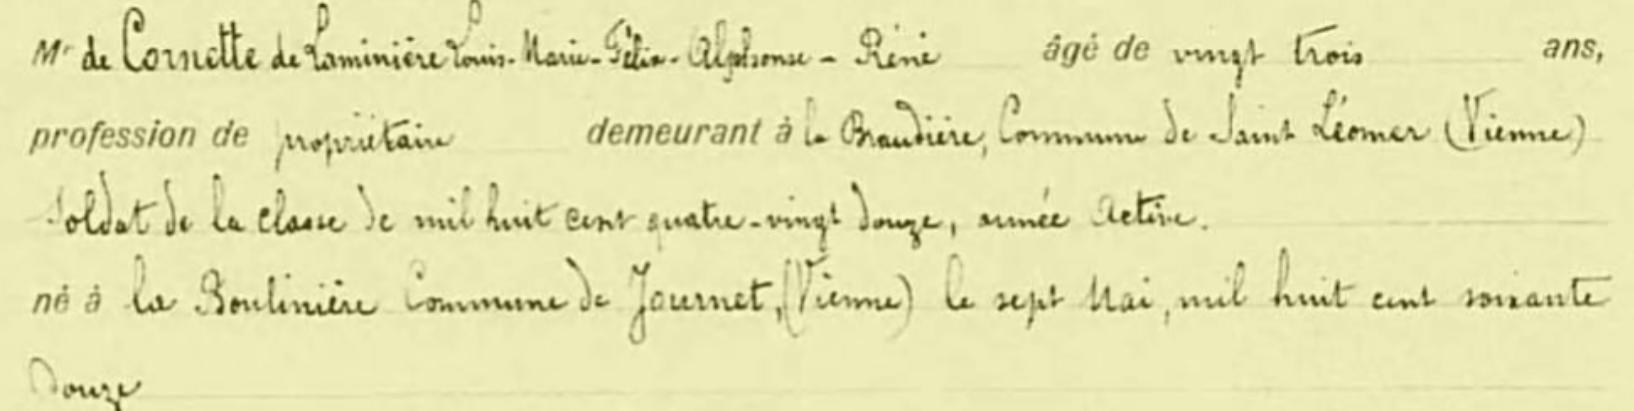 Mr de Cornette de Laminière Louis-Marie-Félix-Alphonse-Réné âgé de vingt trois ans,
profession de propriétaire demeurant à la Braudière, Commune de Saint Léomer (Vienne)
soldat de la classe de mil huit cent quatre-vingt douze, armée Active.
né à la Boulinière Commune de Journet, (Vienne) le sept Mai, mil huit cent soixante
douze